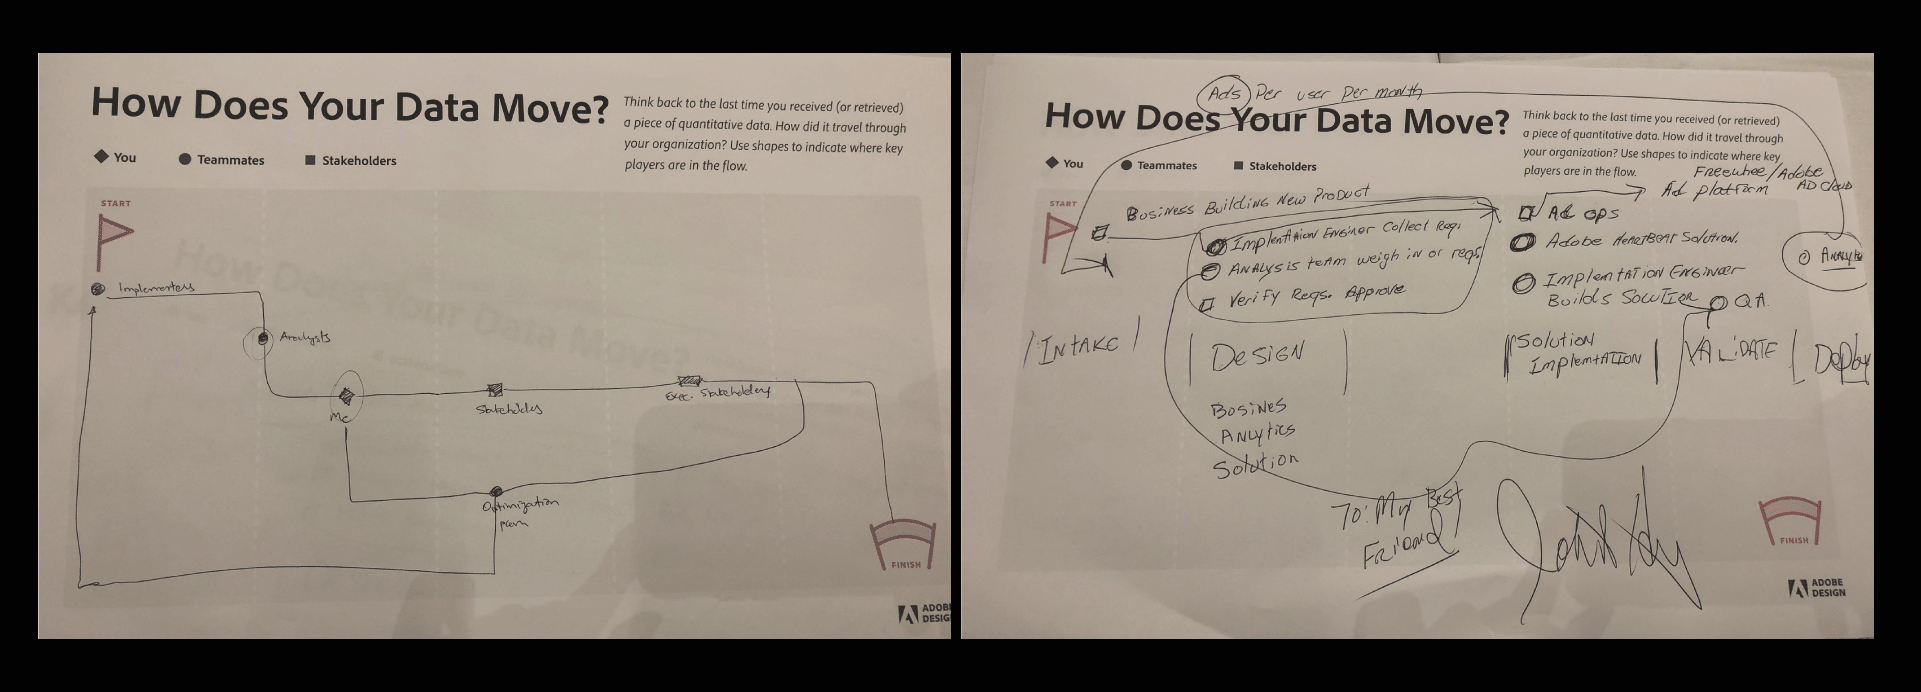 How Does Your Data Move?
Think back to the last time you received (or retrieved)
a piece of quantitative data. How did it travel through
your organization? Use shapes to indicate where key
players are in the flow.
You
Teammates
Stakeholders
START
Implementers
Analysts
Me
Stakeholders
Exec. Stakeholders
Optimization
FINISH
ADOBE
DESIG
Ads Per user Per month
How Does Your Data Move?
Think back to the last time you received (or retrieved)
a piece of quantitative data. How did it travel through
your organization? Use shapes to indicate where key
players are in the flow.
You
Teammates
Stakeholders
Freewhee/Adobe
Ad platform AD Cloud
START
Business Building New Product
Ad ops
ImplentAtion Enginer Collect Req.
Adobe HeartBeat Solution.
ANAlysis teAm weigh in or reqs.
Analyt
Verify Reqs. Approve
ImplemtAtion Engineer
Builds Solution
QA.
INTAKE
DESIGN
Solution
ImplemtATION
VALIDATE
Deploy
Bosines
ANlytics
Solution
To: My Best
Friend
FINISH
ADOBE
DESIGN